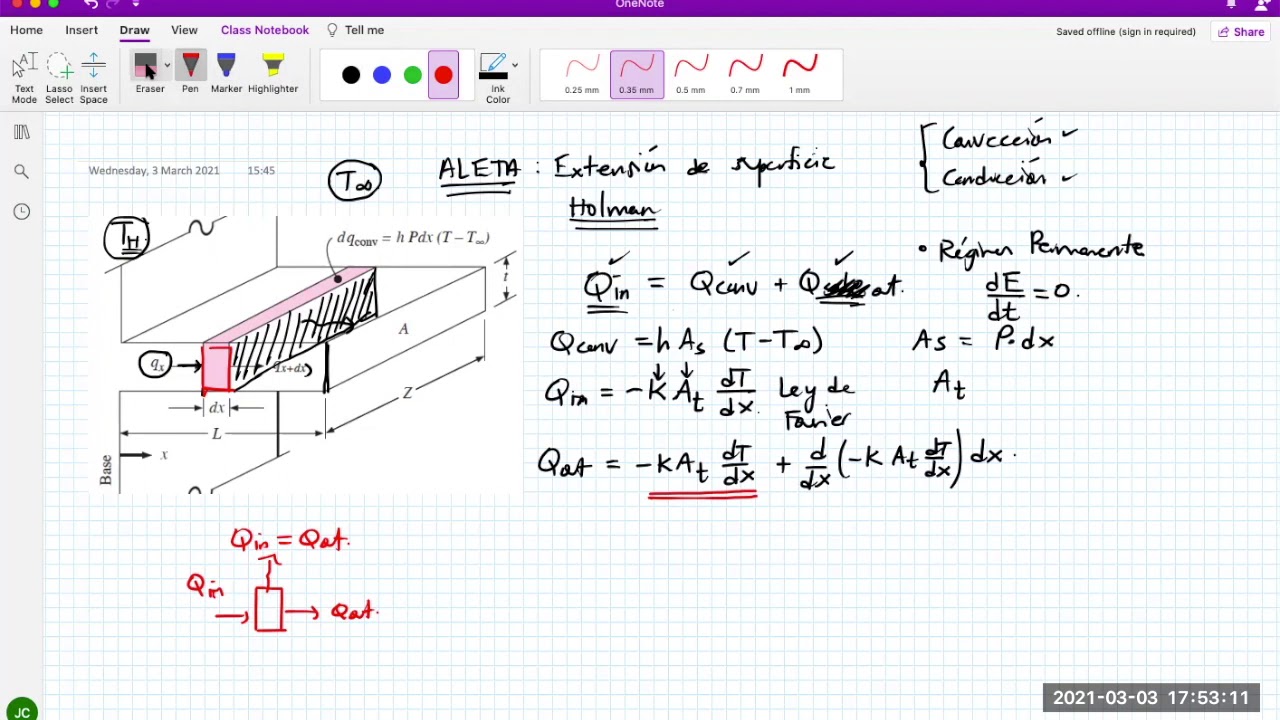 OneNote
Home Insert Draw View Class Notebook Tell me
Saved offline (sign in required) Share
Text Mode
Lasso Select
Insert Space
Eraser
Pen
Marker
Highlighter
Ink Color
0.25 mm
0.35 mm
0.5 mm
0.7 mm
1 mm
Wednesday, 3 March 2021 15:45
T∞
ALETA : Extensión de superficie
Holman
{ Convección ✓
Conducción ✓
• Régimen Permanente
dE/dt = 0.
Q̇in = Qconv + Qout.
Qconv = h As (T-T∞)
As = P·dx
Qin = -K At dT/dx. Ley de Fourier
At
Qout = -KAt dT/dx + d/dx (-K At dT/dx) dx.
TH
dqconv = h Pdx (T – T∞)
t
A
qx
qx+dx
dx
Z
L
x
Base
Qin = Qout.
Qin
Qout.
JC
2021-03-03 17:53:11